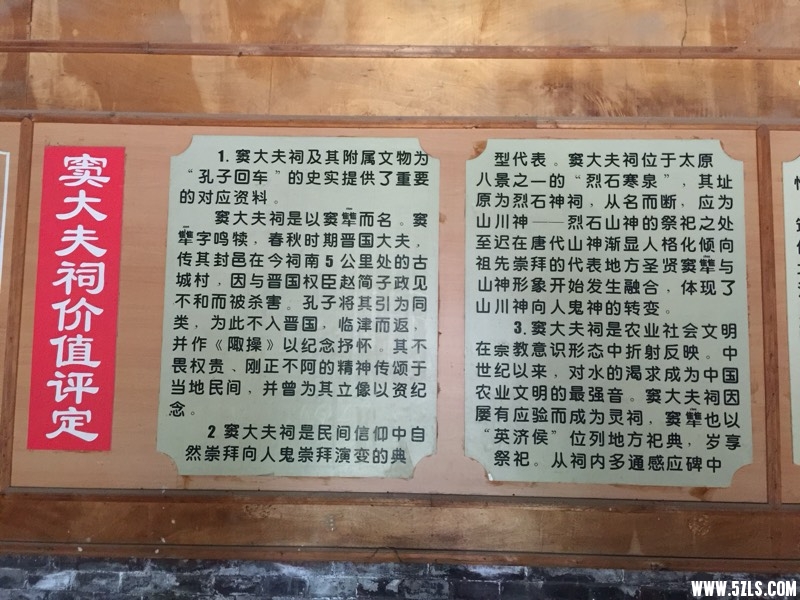 窦大夫祠价值评定
1.窦大夫祠及其附属文物为
“孔子回车”的史实提供了重要
的对应资料。
窦大夫祠是以窦犨而名。窦
犨字鸣犊，春秋时期晋国大夫，
传其封邑在今祠南5公里处的古
城村，因与晋国权臣赵简子政见
不和而被杀害。孔子将其引为同
类，为此不入晋国，临津而返，
并作《陬操》以纪念抒怀。其不
畏权贵、刚正不阿的精神传颂于
当地民间，并曾为其立像以资纪
念。
2 窦大夫祠是民间信仰中自
然崇拜向人鬼崇拜演变的典
型代表。窦大夫祠位于太原
八景之一的“烈石寒泉”，其址
原为烈石神祠，从名而断，应为
山川神——烈石山神的祭祀之处
至迟在唐代山神渐显人格化倾向
祖先崇拜的代表地方圣贤窦犨与
山神形象开始发生融合，体现了
山川神向人鬼神的转变。
3.窦大夫祠是农业社会文明
在崇教意识形态中折射反映。中
世纪以来，对水的渴求成为中国
农业文明的最强音。窦大夫祠因
屡有应验而成为灵祠，窦犨也以
“英济侯”位列地方祀典，岁享
祭祀。从祠内多通感应碑中
WWW.5ZLS.COM